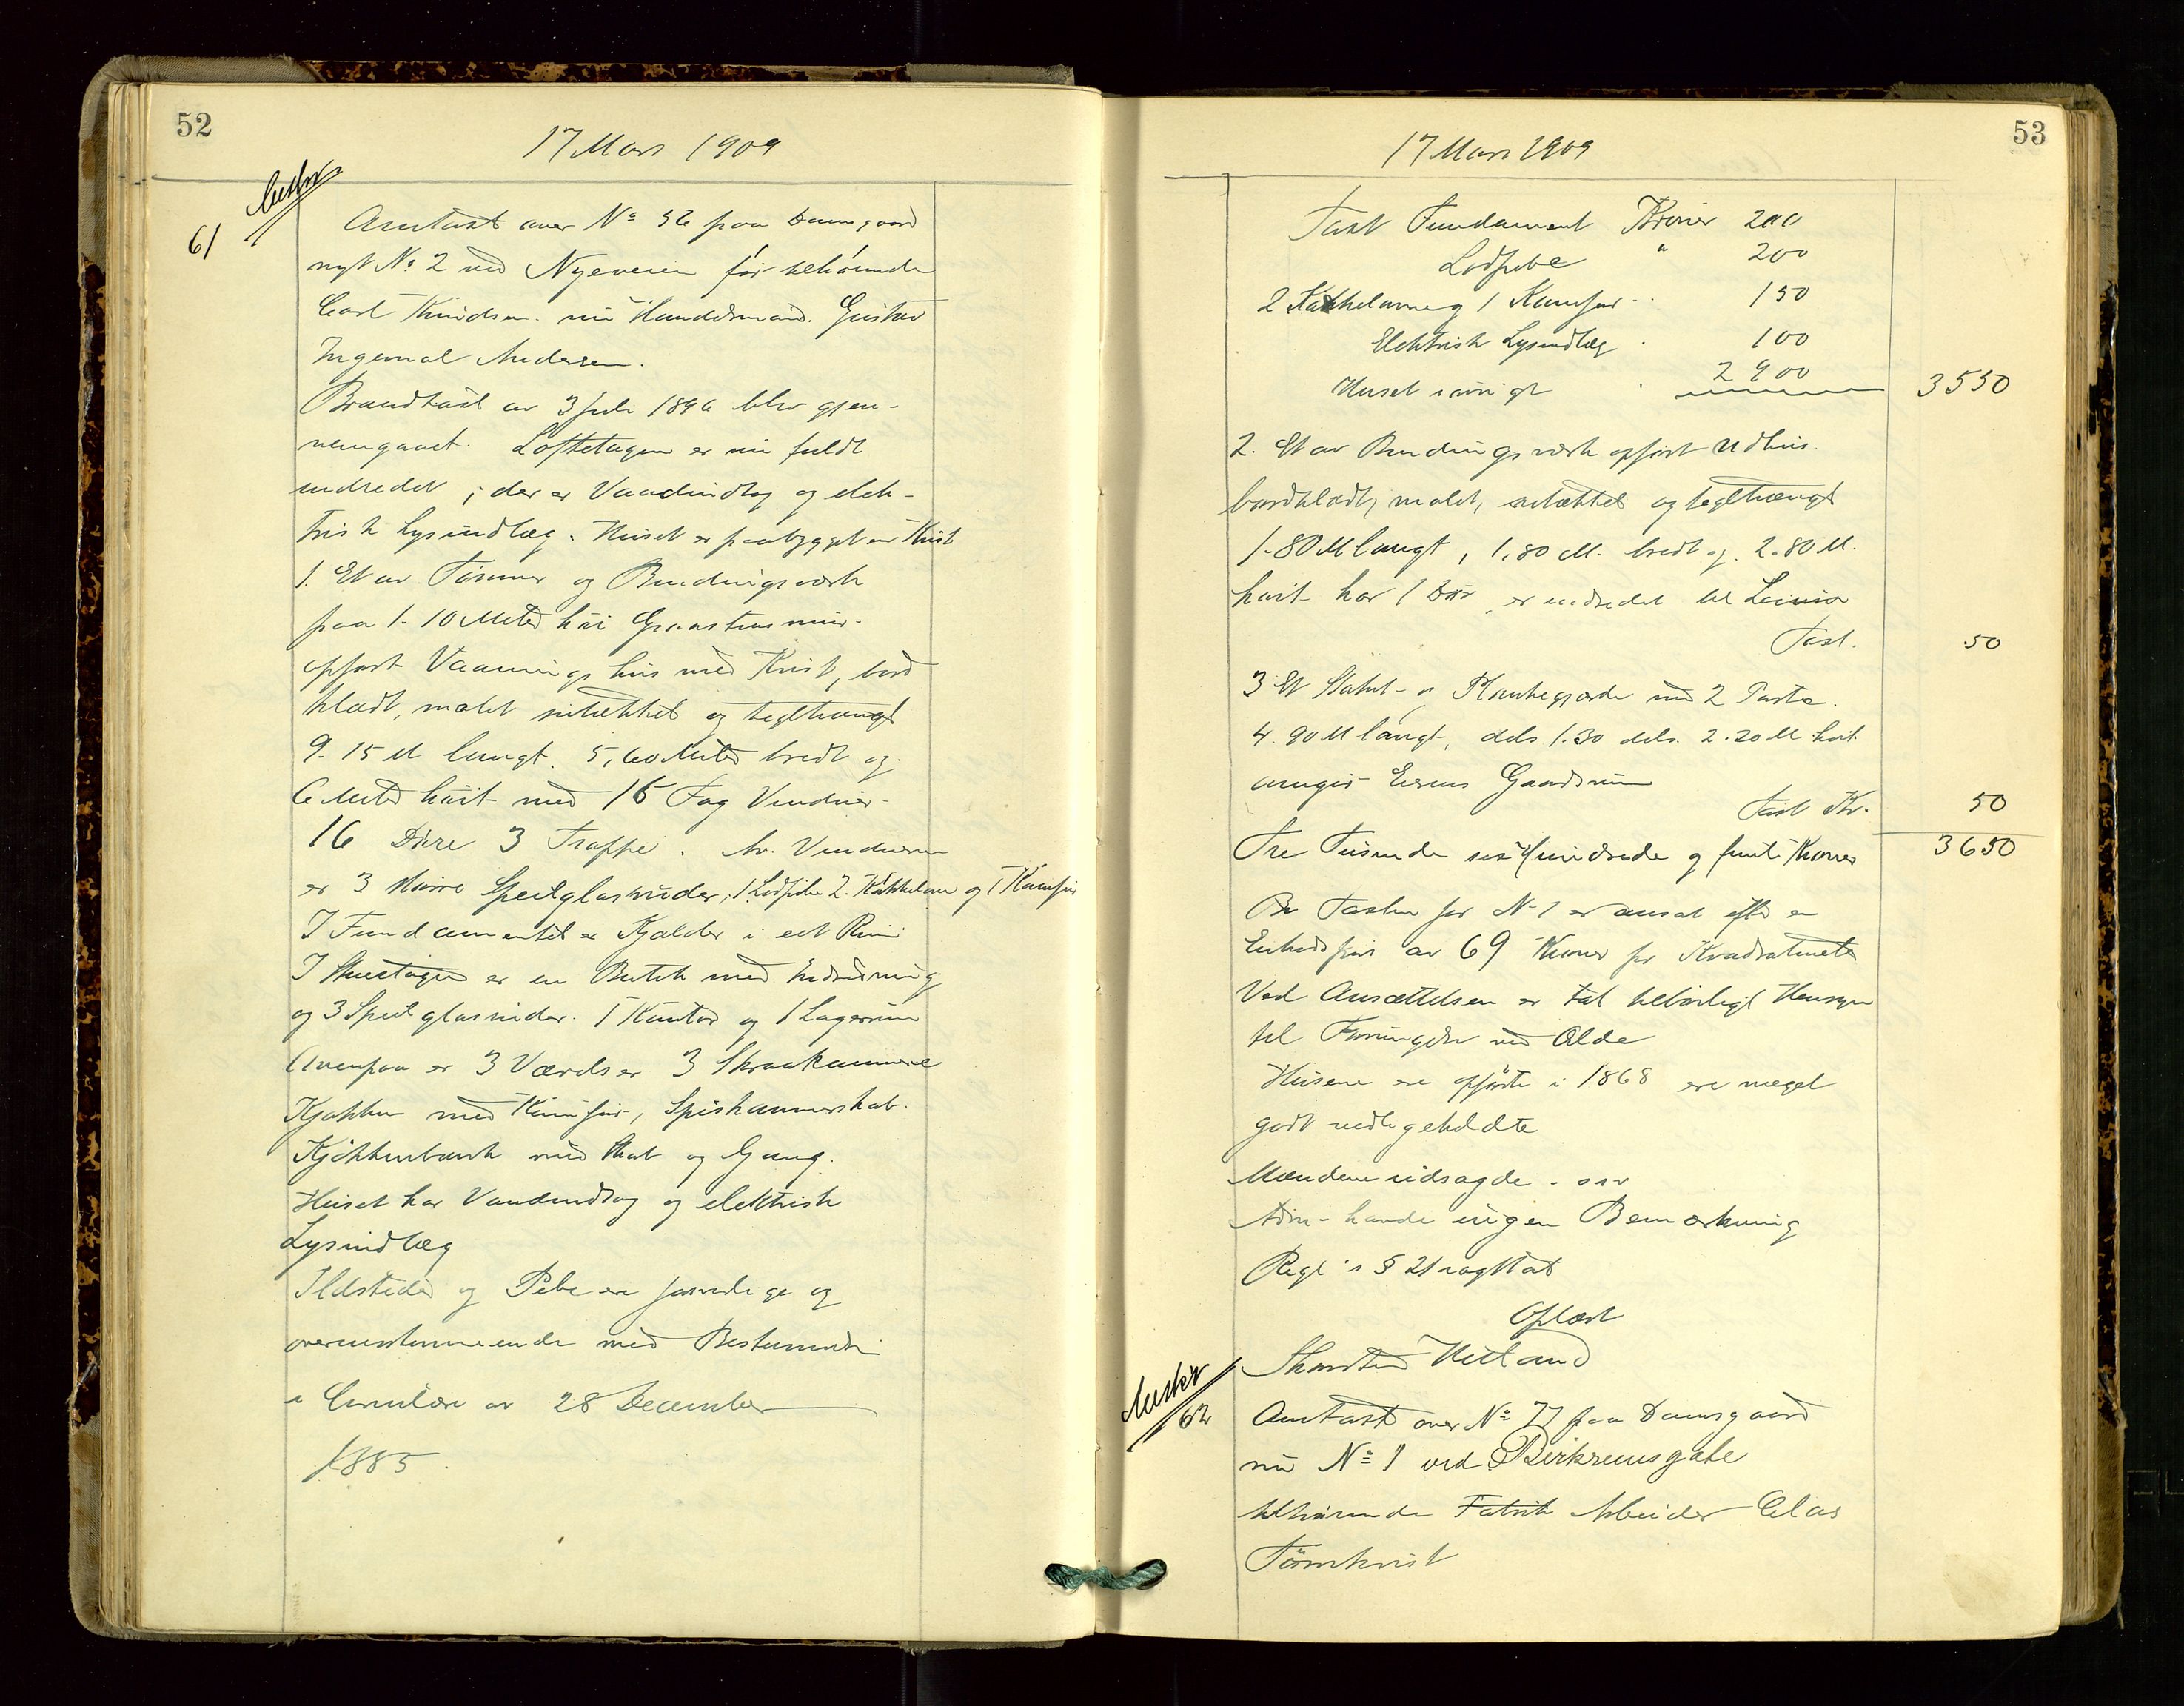 52
17 Mars 1909
61
Omtaxt over No 56 paa Damsgaard
nyt No 2 ved Nyeveien før tilhørende
Carl Knudsen. nu Handelsmand. Gustav
Ingemal Andersen.
Brandtaxt av 3 Juli 1896 blev gjen-
nemgaaet. Loftetagen er nu fuldt
indredet ; der er Vandindlæg og elek-
trisk Lysindlæg. Huset er paabygget en Kvist
1. Et av Tømmer og Bindingsværk
paa 1.10 Meter høi Graastensmur.
opført Vaaningshus med Kvist, bord
klædt, malet sutækket og teglhængt
9.15 M langt. 5,60 Meter bredt og
6 Meter høit med 15 Fag Vinduer-
16 Døre 3 Trappe. Av Vinduerne
er 3 større Speilglasruder; 1 Lodpibe 2. Kakkelovne og 1 Komfur
I Fundamentet er Kjælder i eet Rum
I Stueetagen er en Butik med Indredning
og 3 Speilglasruder. 1 Kontor og 1 Lagerrum
Ovenpaa er 3 Værelser 3 Skraakammere
Kjøkken med Komfur, Spiskammerskab.
Kjøkkenbænk med Skab og Gang.
Huset har Vandindlæg og elektrisk
Lysindlæg
Ildsteder og Pibe ere forsvarlige og
overensstemmende med Bestemmelse
i Cirkulære av 28 December
1885.
53
17 Mars 1909
Taxt Fundament Kroner 200
Lodpibe " 200
2 Kakkelovne og 1 Komfur 150
Elektrisk Lysindlæg 100
Huset iøvrigt 2900 3550
2. Et av Bindingsværk opført Udhus.
bordklædt, malet, sutækket og teglhængt
1.80 M langt, 1,80 M. bredt og 2.80 M.
høit har 1 Dør, er indredet til
Taxt. 50
3 Et Stakit- og Plankegjærde med 2 Porte.
4.90 M langt, dels 1.30 dels. 2.20 M høit
omgir Eiens Gaardsrum
Taxt Kr. 50
Tre Tusinde sex Hundrede og femti Kroner 3650
Taxten for No 1 er ansat efter en
Enhedspris av 69 Kroner pr Kvadratmeter
Ved Ansættelsen er tat tilbørligt Hensyn
til Forringelse ved Ælde
Husene ere opførte i 1868 ere meget
godt vedligeholdte
Mændene udsagde
havde ingen Bemærkning
Regl's § 21 iagttat
Oplæst
Skarsten Hetland
62
Omtaxt over No 77 paa Damsgaard
nu No 1 ved Birkremsgate
tilhørende Fabrik Arbeider Claes
Törnkvist